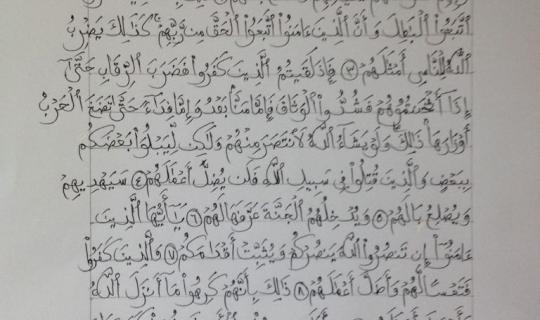 ٱتَّبَعُوا۟ ٱلْبَٰطِلَ وَأَنَّ ٱلَّذِينَ ءَامَنُوا۟ ٱتَّبَعُوا۟ ٱلْحَقَّ مِن رَّبِّهِمْ ۚ كَذَٰلِكَ يَضْرِبُ
ٱللَّهُ لِلنَّاسِ أَمْثَٰلَهُمْ ٣ فَإِذَا لَقِيتُمُ ٱلَّذِينَ كَفَرُوا۟ فَضَرْبَ ٱلرِّقَابِ حَتَّىٰٓ
إِذَآ أَثْخَنتُمُوهُمْ فَشُدُّوا۟ ٱلْوَثَاقَ فَإِمَّا مَنًّۢا بَعْدُ وَإِمَّا فِدَآءً حَتَّىٰ تَضَعَ ٱلْحَرْبُ
أَوْزَارَهَا ۚ ذَٰلِكَ وَلَوْ يَشَآءُ ٱللَّهُ لَٱنتَصَرَ مِنْهُمْ وَلَٰكِن لِّيَبْلُوَا۟ بَعْضَكُم
بِبَعْضٍ ۗ وَٱلَّذِينَ قُتِلُوا۟ فِى سَبِيلِ ٱللَّهِ فَلَن يُضِلَّ أَعْمَٰلَهُمْ ٤ سَيَهْدِيهِمْ
وَيُصْلِحُ بَالَهُمْ ٥ وَيُدْخِلُهُمُ ٱلْجَنَّةَ عَرَّفَهَا لَهُمْ ٦ يَٰٓأَيُّهَا ٱلَّذِينَ
ءَامَنُوٓا۟ إِن تَنصُرُوا۟ ٱللَّهَ يَنصُرْكُمْ وَيُثَبِّتْ أَقْدَامَكُمْ ٧ وَٱلَّذِينَ كَفَرُوا۟
فَتَعْسًا لَّهُمْ وَأَضَلَّ أَعْمَٰلَهُمْ ٨ ذَٰلِكَ بِأَنَّهُمْ كَرِهُوا۟ مَآ أَنزَلَ ٱللَّهُ